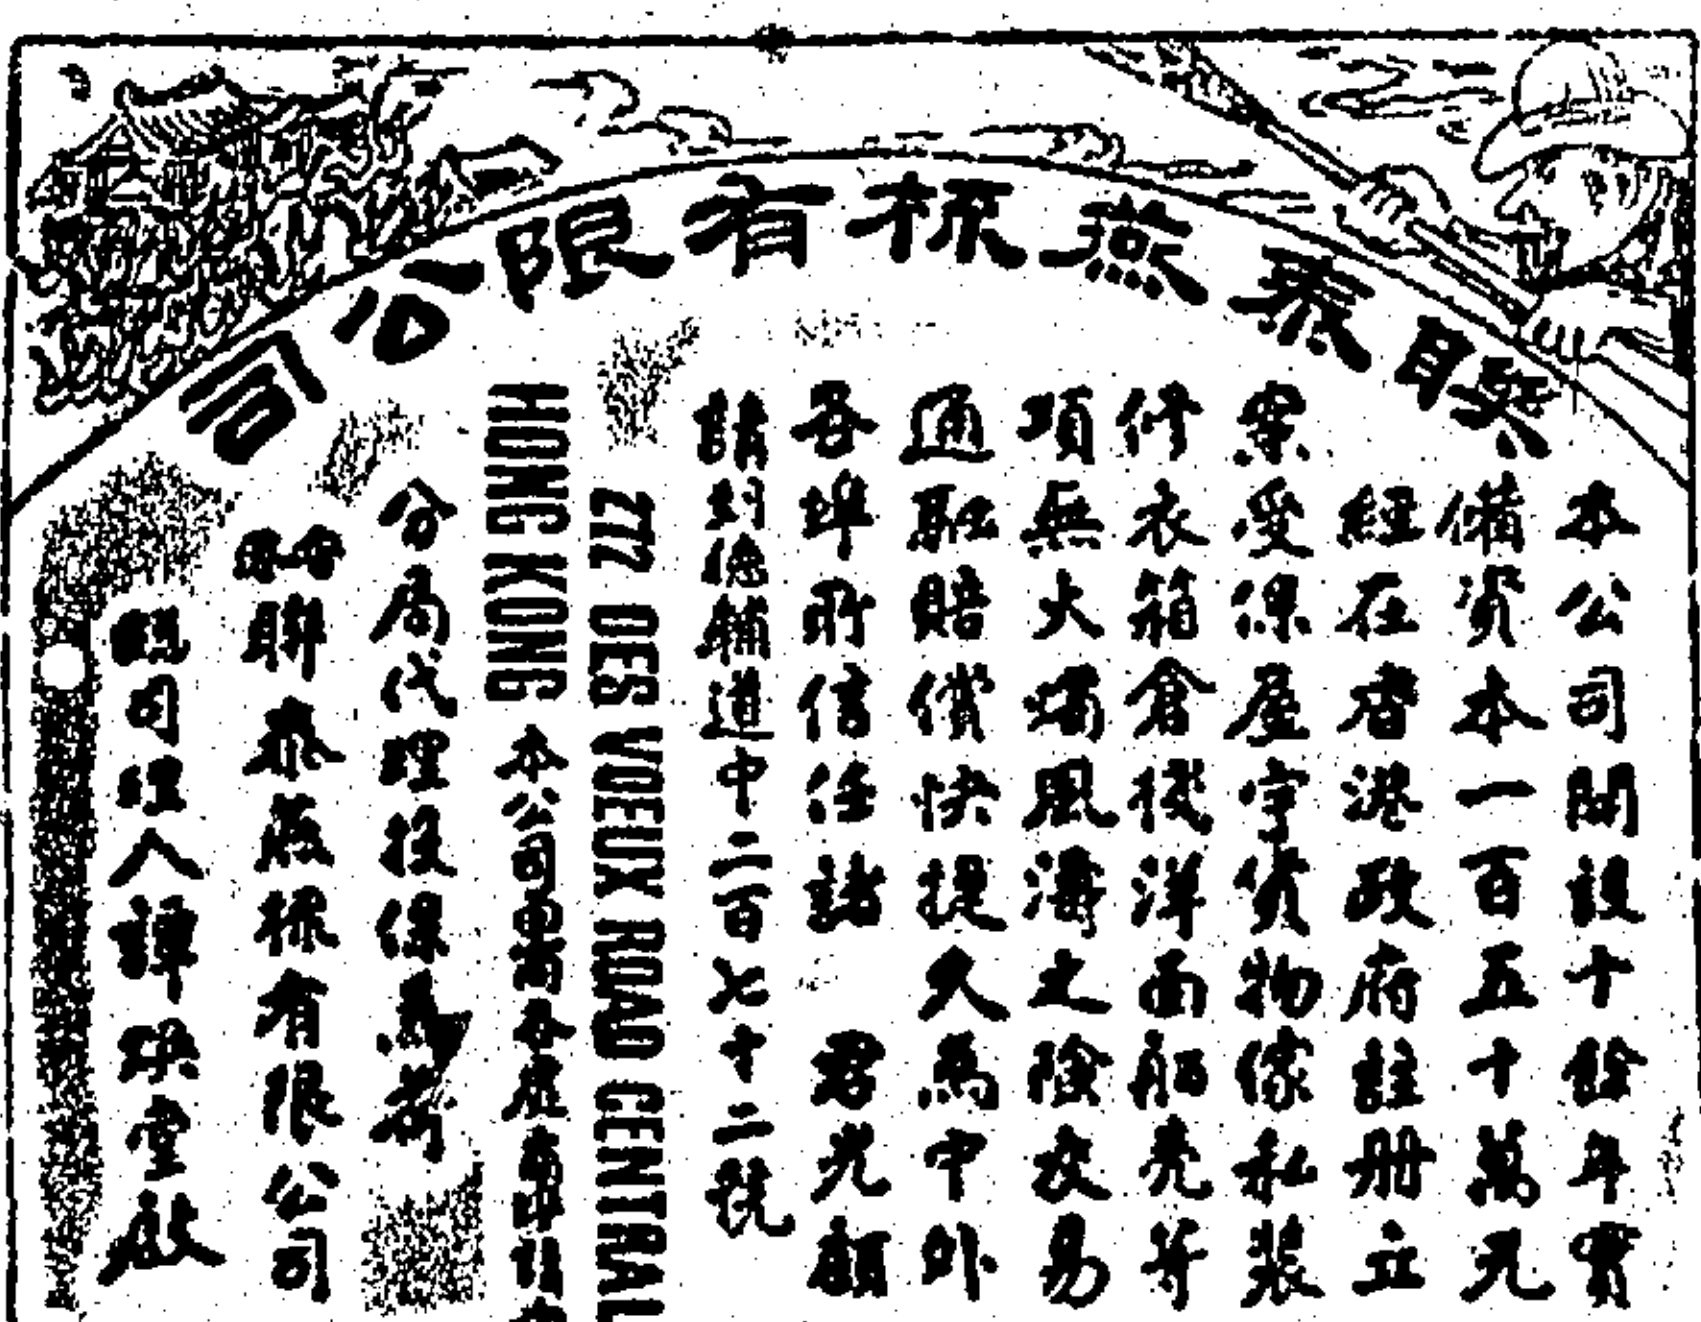 聯泰燕梳有限公司
本公司開設十餘年實
備資本一百五十萬元
經在香港政府註册立
案受保屋宇貨物傢私裝
修衣箱倉棧洋面船壳等
項無火燭風濤之險夜易
通融賠償快捷久為中外
各埠所信任諸 君光顧
請到德輔道中二百七十二號
272 DES VOEUX ROAD CENTRAL
HONG KONG 本公司各處
分局代理投保為荷
聯泰燕梳有限公司
司理人譚煥堂啟